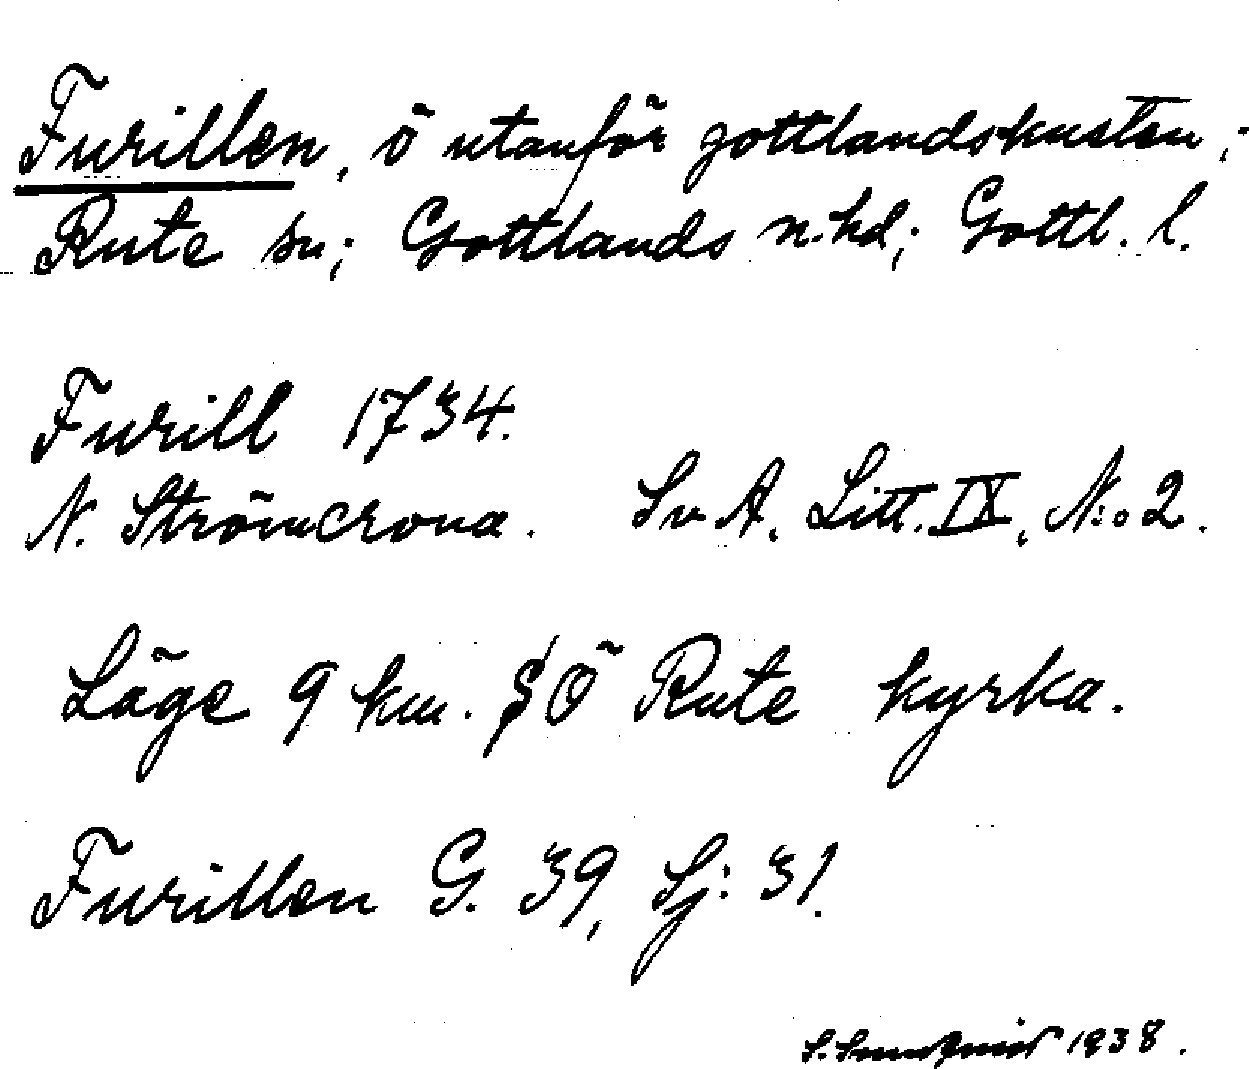 Furillen, ö utanför gottlandskusten;
Rute sn; Gottlands n. hd; Gottl. l.
Furill 1734.
N. Strömcrona. Sv A. Litt. IX, N:o 2.
Läge 9 km. Ö Rute kyrka.
Furillen G. 39, Sj: 31.
1938.